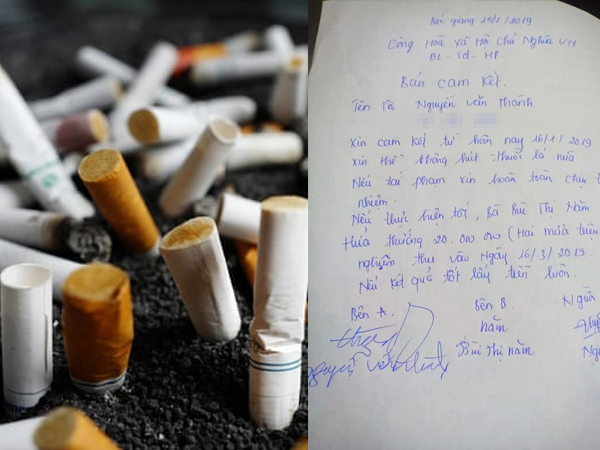 Bắc giang 15/1/2019
Cộng Hoà Xã Hội Chủ Nghĩa VN
ĐL - TD - HP.
Bản cam kết.
Tên Tôi Nguyễn văn Thành
Xin cam kết từ hôm nay 16/1/2019
xin thề không hút thuốc lá nữa
Nếu tái phạm xin hoàn toàn chịu
nhiệm.
Nếu thực hiện tốt, Bà Bùi Thị Năm
Hứa thưởng 20.000.000 (Hai mươi triệu
nghiệm thu vào Ngày 16/3/2019.
Nếu kết quả tốt lấy tiền luôn.
Bên A. Bên B. Người
năm
Bùi Thị năm